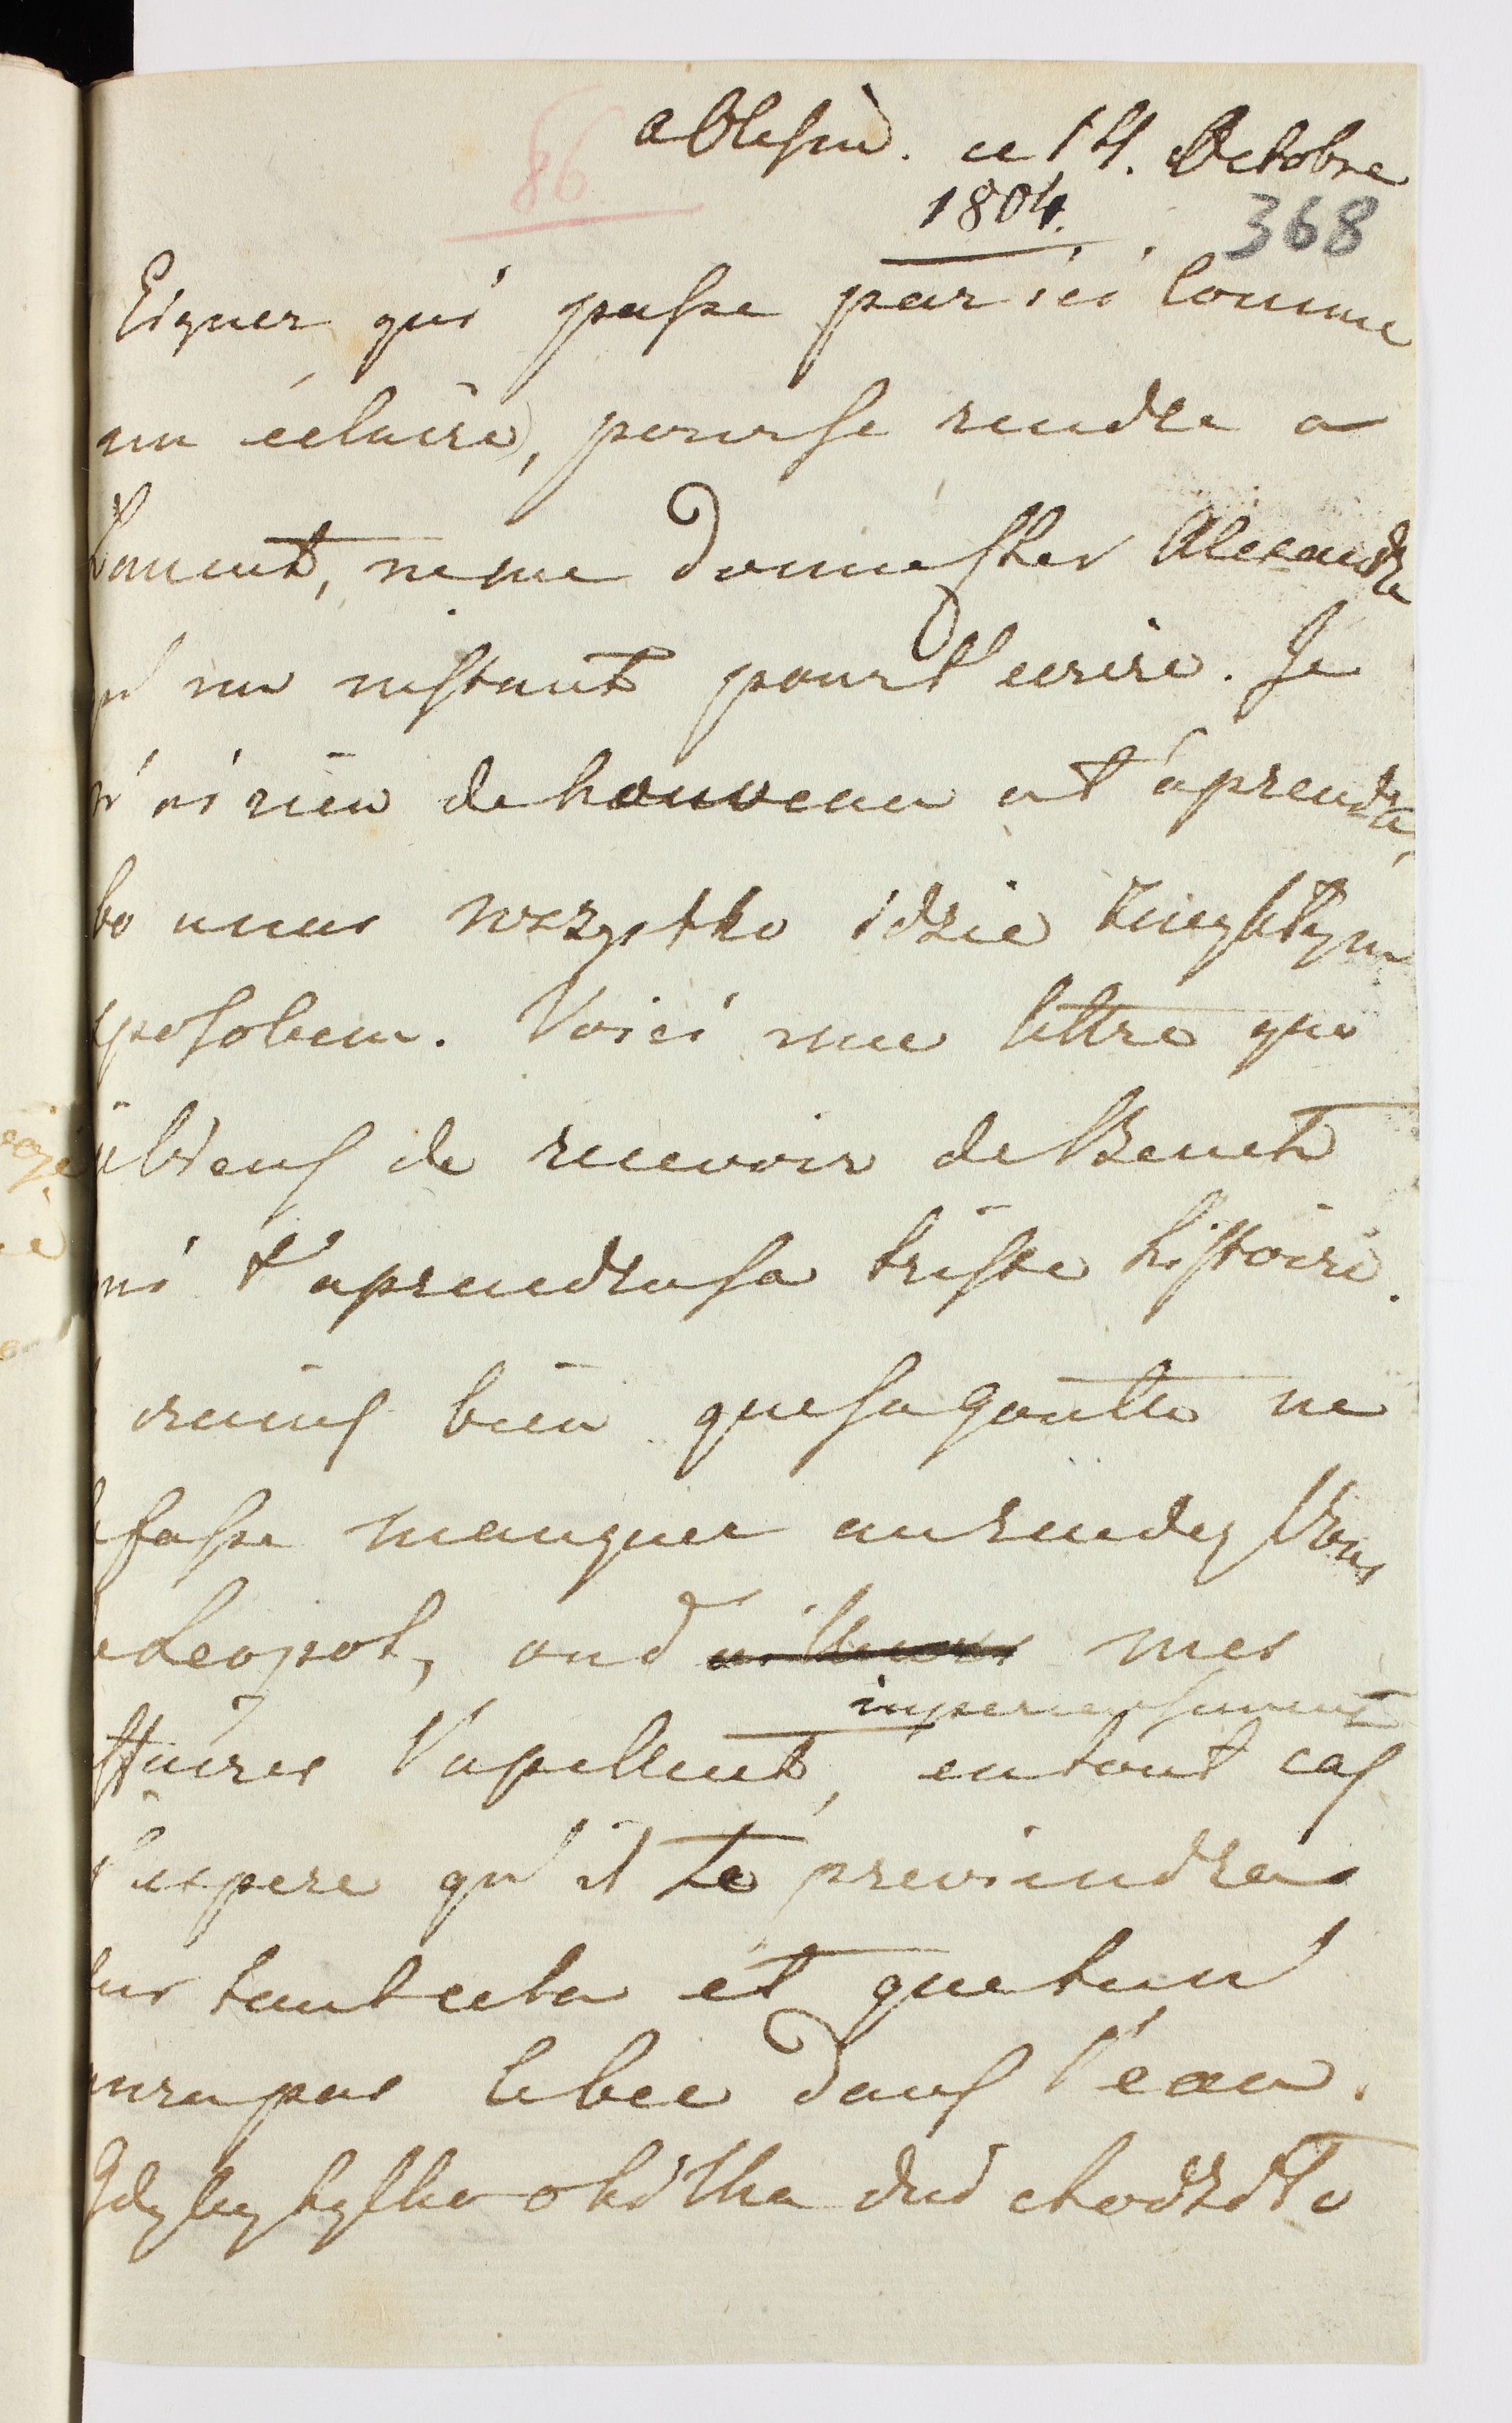 86
a Olesin. ce 14. Octobre
1804.
368
Eigner qui passe par ici comme
un éclaire, pour se rendre a
Lancut, ne me donne Cher Alexandre
qu'un instant pour t'ecrire. Je
n'ai rien de nouveau a t'aprendre,
bo unas wszystko idzie zwykłym
sposobem. Voici une lettre que
je viens de recevoir de Benet
qui t'aprendra sa triste histoire.
crains bien que sa goutte ne
le fasse manquer au rendez vous
de Leopol, ou d mes
imperieusement
affaires l'apellent, en tout cas
j'espere qu'il te previendra
sur tout cela et que tu n'
aura pas le bec dans l'eau.
Gdyby tylko o kilka dni chodziło